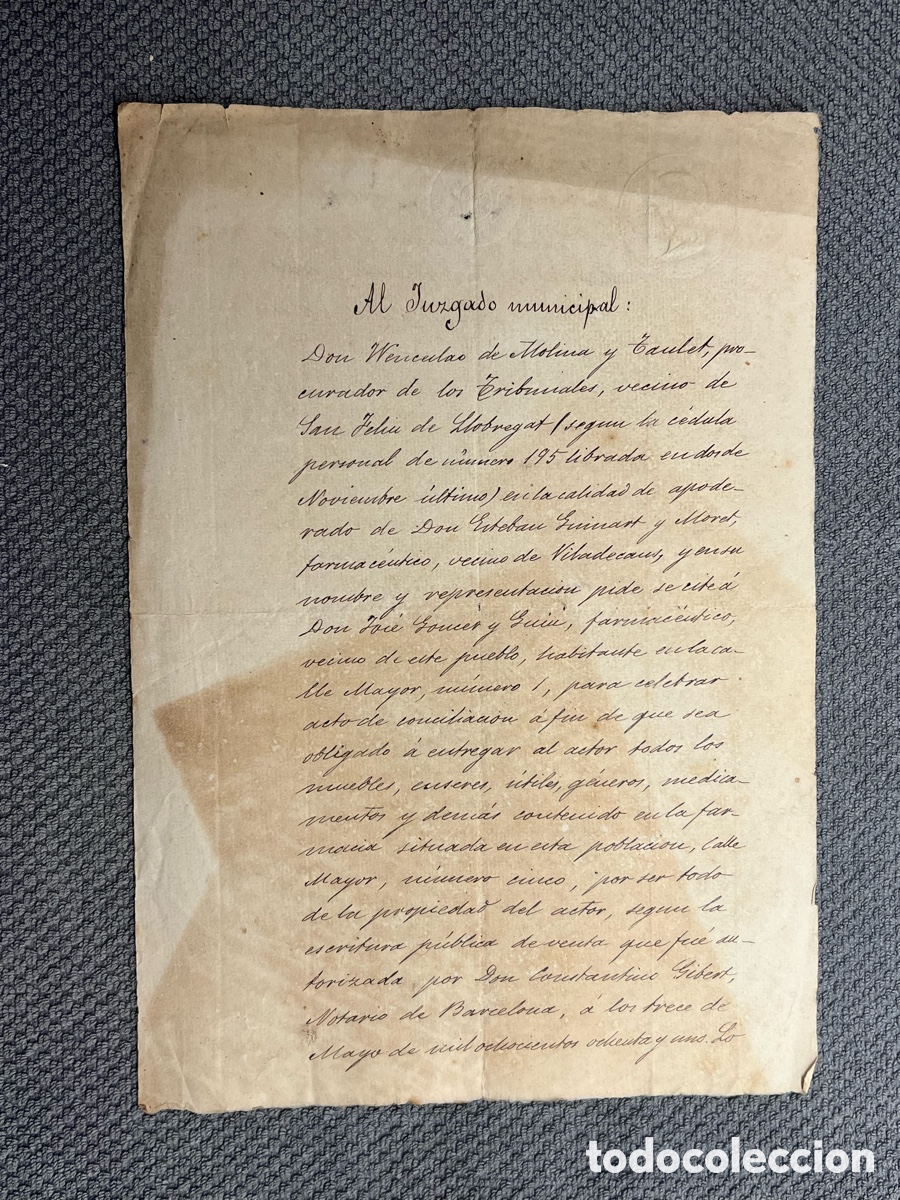 Al Juzgado municipal:
Don Wenceslao de Molina y Taulet, pro-
curador de los Tribunales, vecino de
San Feliu de Llobregat (segun la cédula
personal de número 195 librada en dos de
Noviembre último) en la calidad de apode-
rado de Don Esteban Guinart y Moret,
farmacéutico, vecino de Viladecans, y en su
nombre y representacion pide se cite á
Don José y farmacéutico,
vecino de este pueblo, habitante en la ca-
lle Mayor, número 1, para celebrar
acto de conciliacion á fin de que sea
obligado á entregar al actor todos los
muebles, enseres, útiles, géneros, medica-
mentos y demás contenido en la far-
macia situada en esta poblacion, Calle
Mayor, número cinco, por ser todo
de la propiedad del actor, segun la
escritura pública de venta que fué au-
torizada por Don Constantino Gibert,
Notario de Barcelona, á los trece de
Mayo de mil ochocientos ochenta y uno. Lo
todocoleccion.net